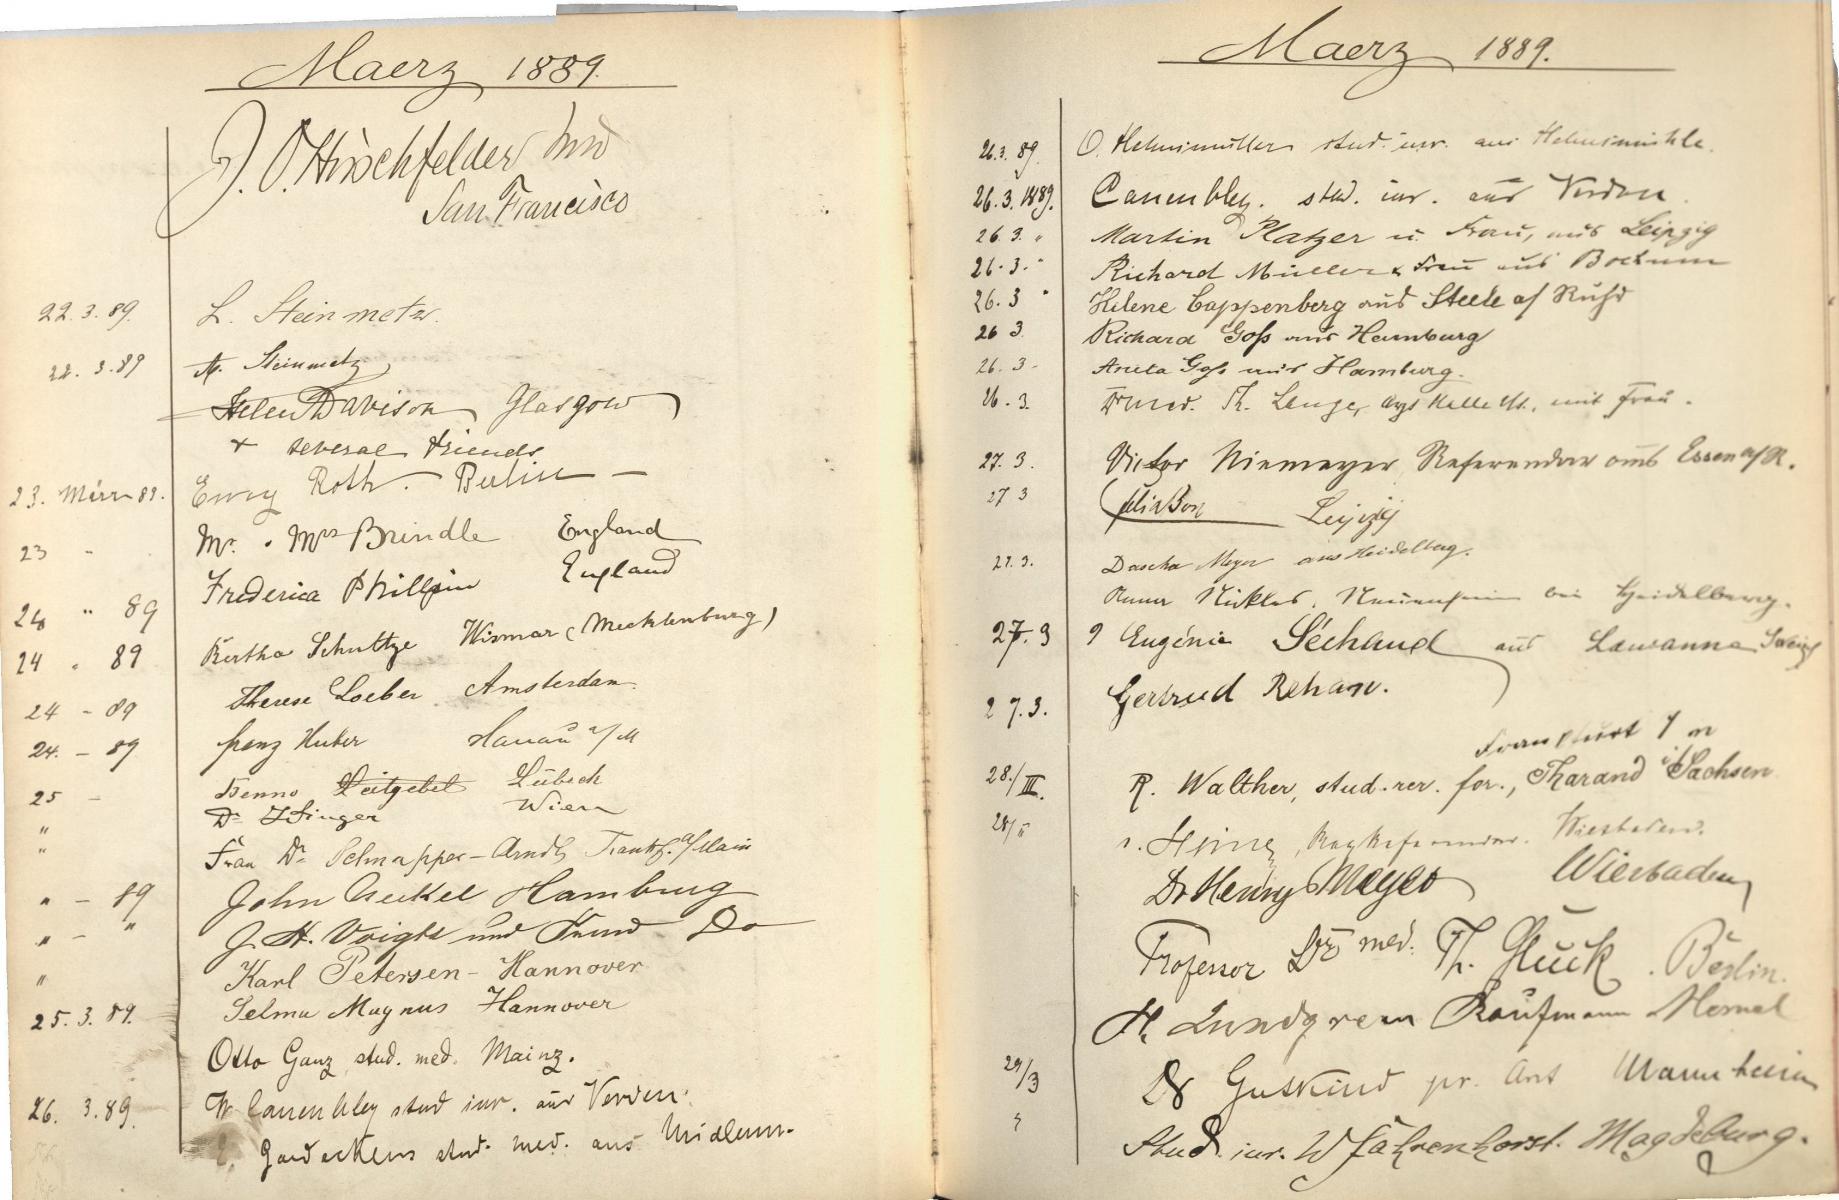 Maerz 1889.
J. O. Hirschfelder
San Francisco
22.3.89. L. Steinmetz.
22.3.89 A. Steinmetz
Helen Davison, Glasgow
+ several friends
23. März 89. Emy Roth. Berlin —
23 " Mr. . Mrs Brindle England
24 " 89 Frederica Phillpin England
24 . 89 Bertha Schultze Wismar (Mecklenburg)
24 - 89 Therese Loeber Amsterdam.
24. - 89 Franz Huber Hanau a/M
25 - Benno Leitgebel Lübeck
" Dr Singer Wien
" Frau Dr Schnapper-Arndt, Frankf. a/Main
" - 89 John Hamburg
" - " J. H. Voigts und Do
" Karl Petersen - Hannover
25.3.89. Selma Magnus Hannover
Otto Ganz, stud. med. Mainz.
26. 3.89. W stud iur. aus Verden.
stud. med. aus Midlum.
Maerz 1889.
26.3.89. O. Helmsmüller stud. iur. aus Helmsmühle.
26.3.1889. stud. iur. aus Verden.
26.3. " Martin Platzer u. Frau, aus Leipzig
26.3. " Richard Müller & Frau aus Bochum
26.3 " Helene Cappenberg aus Steele a/ Ruhr
26 3. Richard Goß aus Hamburg
26.3. Goß aus Hamburg.
26.3. Dr med. Th. Lange, mit Frau.
27.3. Victor Niemeyer, Referendar aus Essen a/R.
27 3 Leipzig
27.3. Dascha Meyer aus Heidelberg.
Anna Nikles, Neuenheim bei Heidelberg.
27.3 Eugénie Séchaud aus Lausanne
27.3. Gertrud Rehan.
Frankfurt / m
28./III. R. Walther, stud. rer. for., Tharand i/Sachsen
28/ Wiesbaden.
Dr Henry Meyer Wiesbaden
Professor Dr med. Th. Gluck. Berlin.
H. Lundgreen Kaufmann Memel
29/3 Dr Guskind pr. Arzt Mannheim
Stud. iur. W Fährenhorst. Magdeburg.